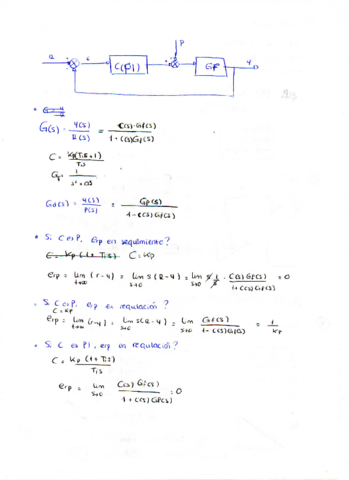 R e C(s) P Gp y
G(s) = Y(s)/R(s) = C(s)·Gp(s)/1+C(s)Gp(s)
C = Kp(Tis+1)/Tis
Gp = 1/
Gd(s) = Y(s)/P(s) = Gp(s)/1-C(s)Gp(s)
• Si C es P, erp en seguimiento?
C = Kp (1+Tis) C = Kp
erp = lim t→∞ (r-y) = lim s→0 s(R-Y) = lim s→0 C(s)Gp(s)/1+C(s)Gp(s) = 0
Si C es P, erp en regulación?
C = Kp
erp = lim t→∞ (r-y) = lim s→0 s(R-Y) = lim s→0 Gp(s)/1-C(s)Gp(s) = 1/Kp
• Si C es PI, erp en regulación?
C = Kp (1+Tis)/Tis
erp = lim s→0 C(s) Gp(s)/1+C(s)Gp(s) = 0